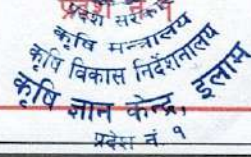 प्रदेश सरकार
कृषि मन्त्रालय
कृषि विकास निर्देशनालय
कृषि ज्ञान केन्द्र, इलाम
प्रदेश नं. १